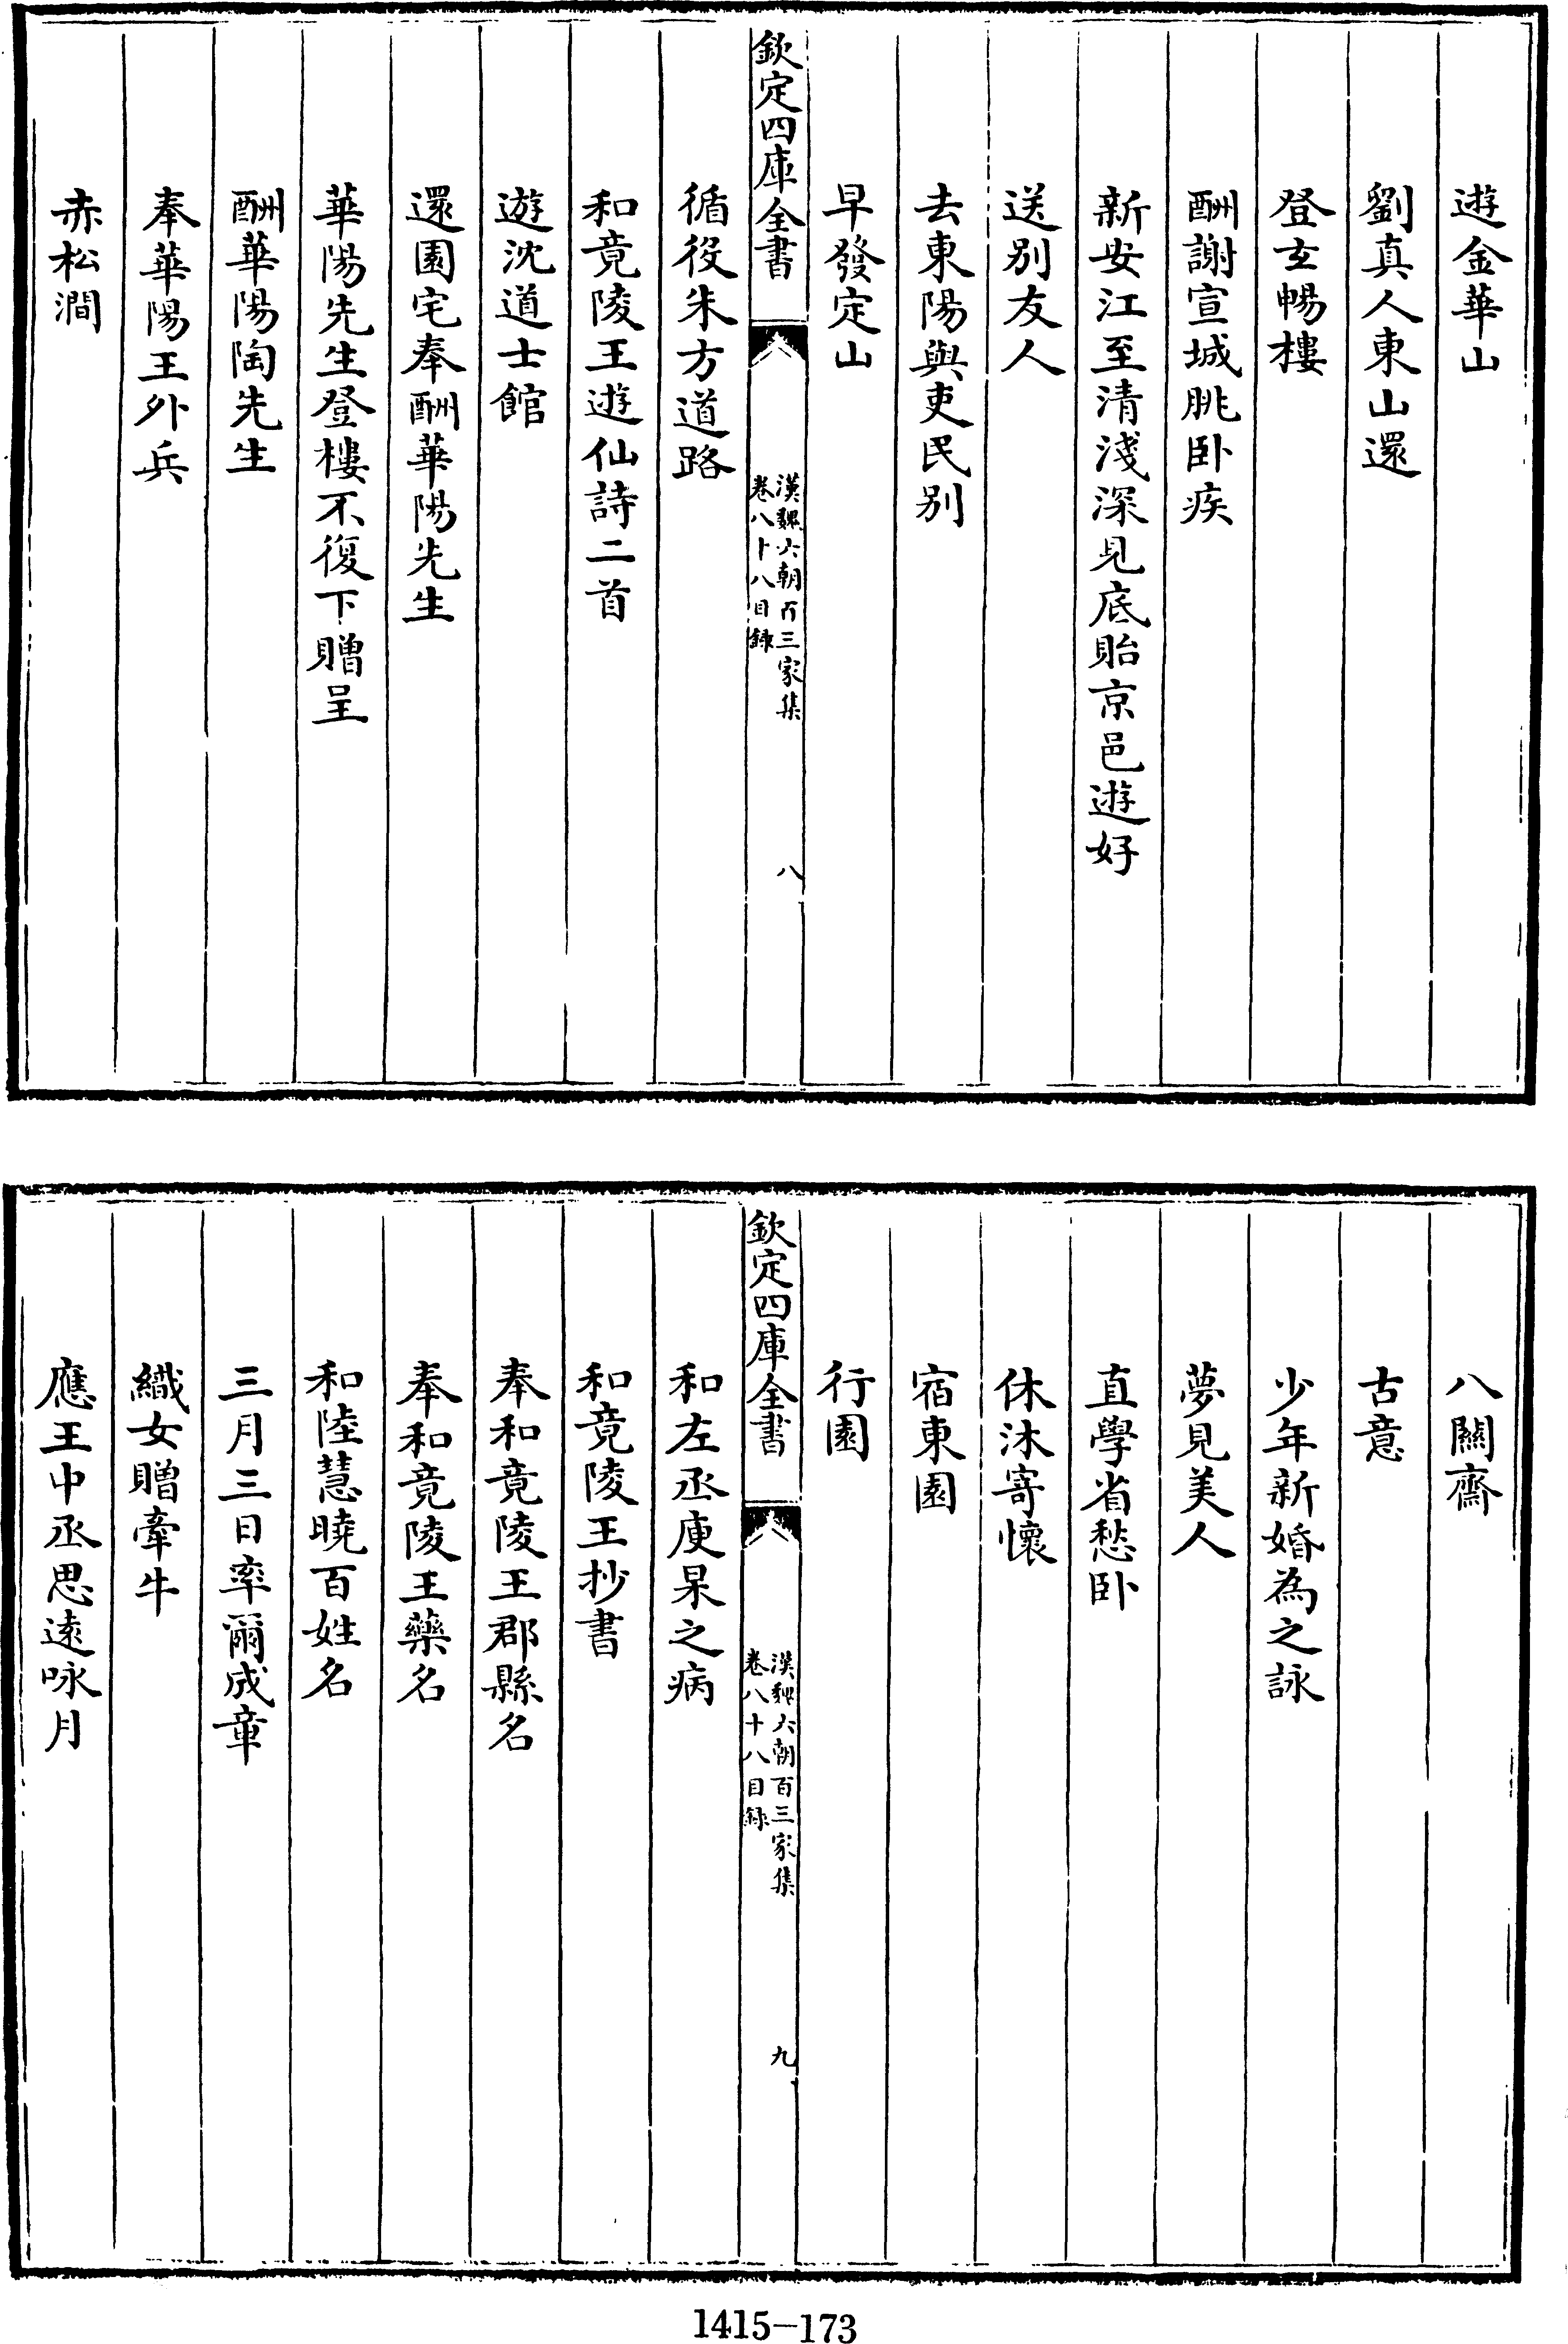 遊金華山
劉真人東山還
登玄暢樓
酬謝宣城朓卧疾
新安江至清淺深見底貽京邑遊好
送别友人
去東陽與吏民别
早發定山
欽定四庫全書
漢魏六朝百三家集
卷八十八目録
八
循役朱方道路
和竟陵王遊仙詩二首
遊沈道士館
還園宅奉酬華陽先生
華陽先生登樓不復下贈呈
酬華陽陶先生
奉華陽王外兵
赤松澗
八關齋
古意
少年新婚為之詠
夢見美人
直學省愁卧
休沐寄懷
宿東園
行園
欽定四庫全書
漢魏六朝百三家集
卷八十八目録
九
和左丞庾杲之病
和竟陵王抄書
奉和竟陵王郡縣名
奉和竟陵王藥名
和陸慧曉百姓名
三月三日率爾成章
織女贈牽牛
應王中丞思遠咏月
1415-173